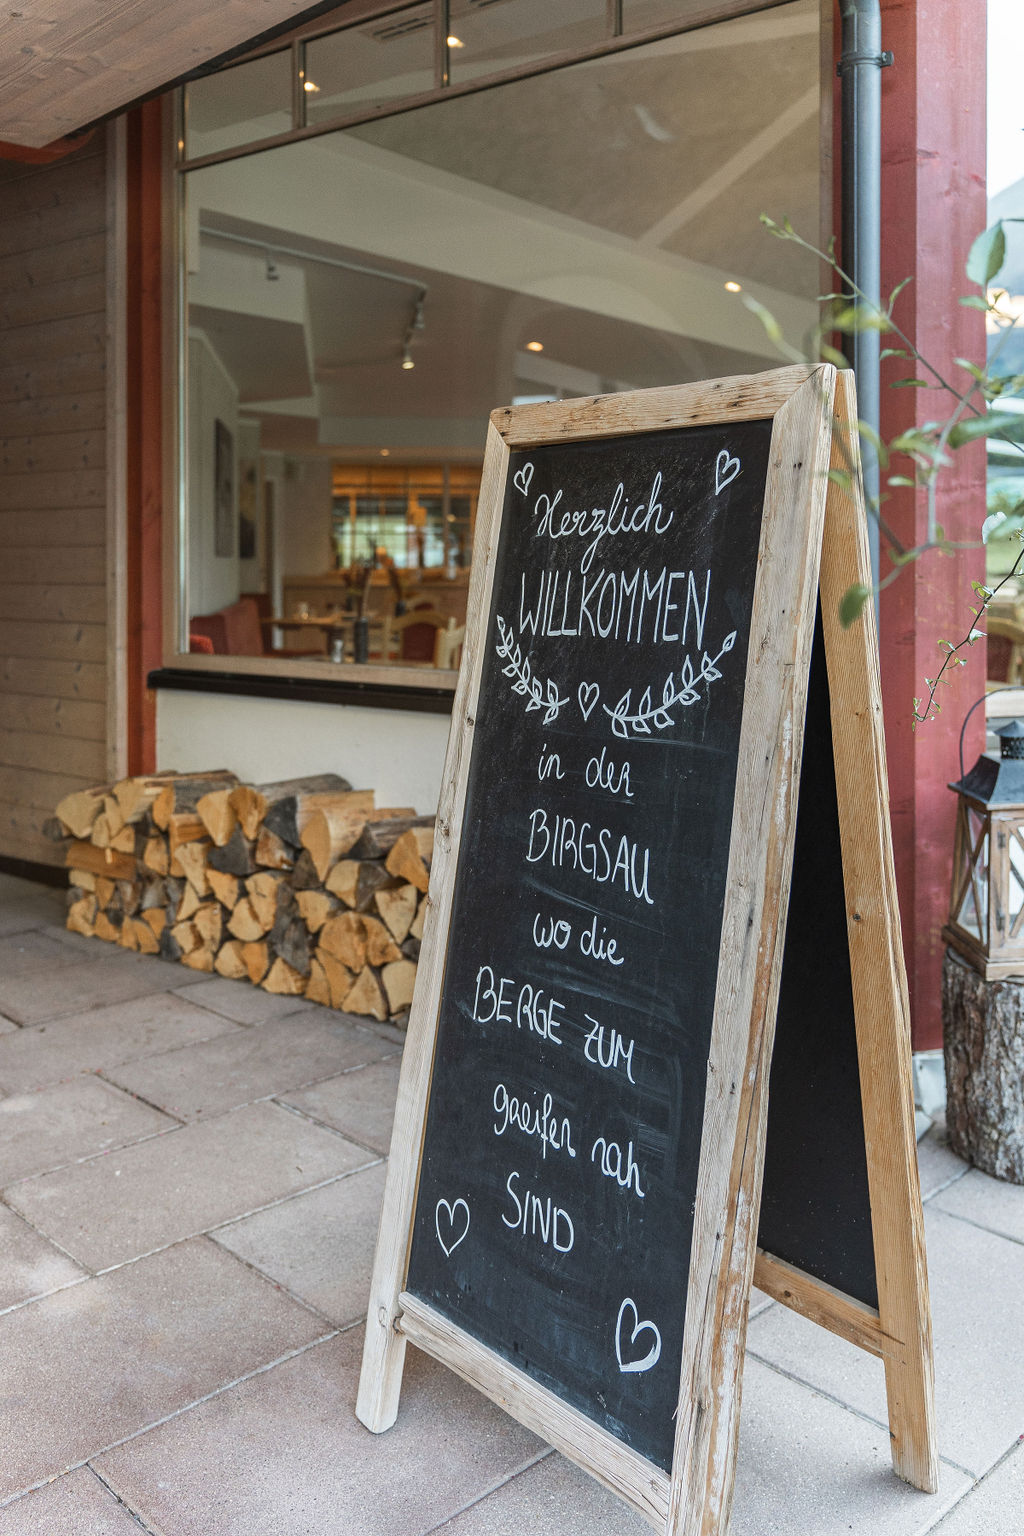 Herzlich
WILLKOMMEN
in der
BIRGSAU
wo die
BERGE ZUM
greifen nah
SIND